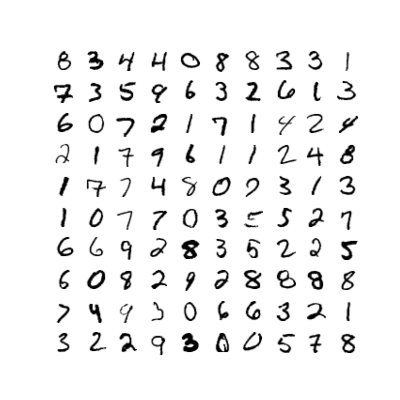 8 3 4 4 0 8 8 3 3 1
7 3 5 9 6 3 2 6 1 3
6 0 7 2 1 7 1 4 2 4
2 1 7 9 6 1 1 2 4 8
1 7 7 4 8 0 7 3 1 3
1 0 7 7 0 3 5 5 2 7
6 6 9 2 8 3 5 2 2 5
6 0 8 2 9 2 8 8 8 8
7 4 9 3 0 6 6 3 2 1
3 2 2 9 3 0 0 5 7 8